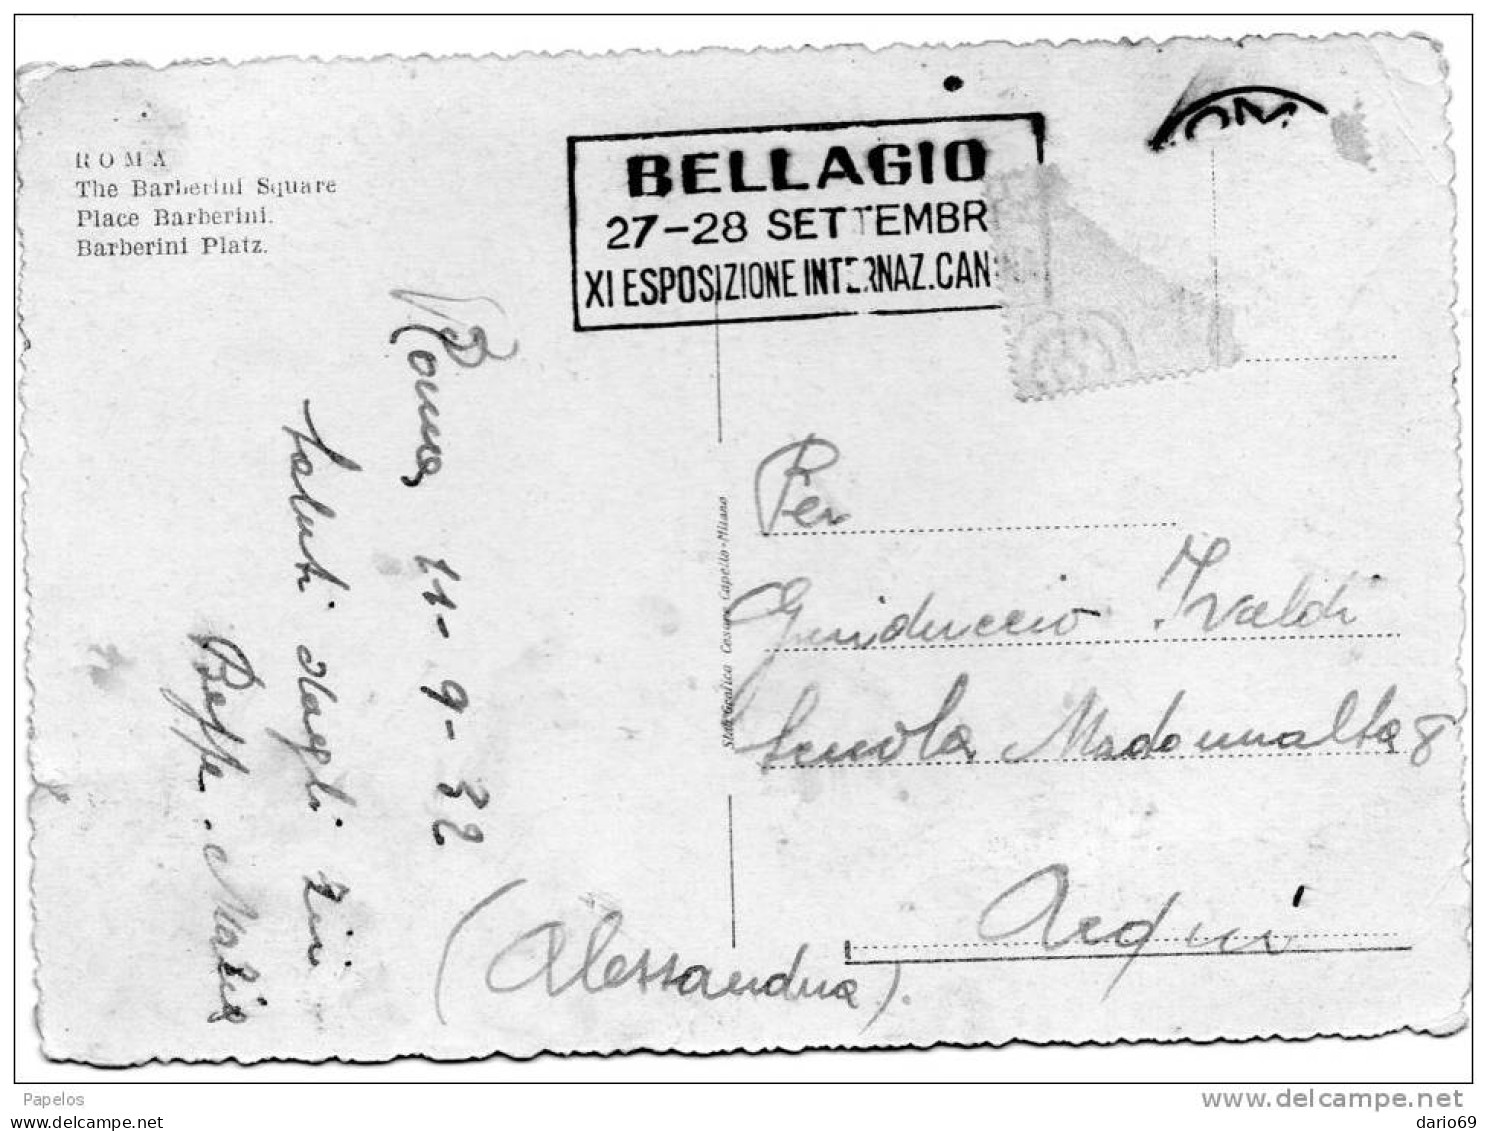 ROMA
The Barberini Square
Place Barberini.
Barberini Platz.
BELLAGIO
27-28 SETTEMBR
XI ESPOSIZIONE INTERNAZ.CAN
OM
Roma, 11-9-32
Saluti dagli zii
Beppe. Maria
Stab. Grafico Cesare Capello-Milano
Per
Guiduccio Ivaldi
Scuola Madonnalta 8
Acqui
(Alessandria).
Papelos
mycollection.delcampe.net
www.delcampe.net
dario69